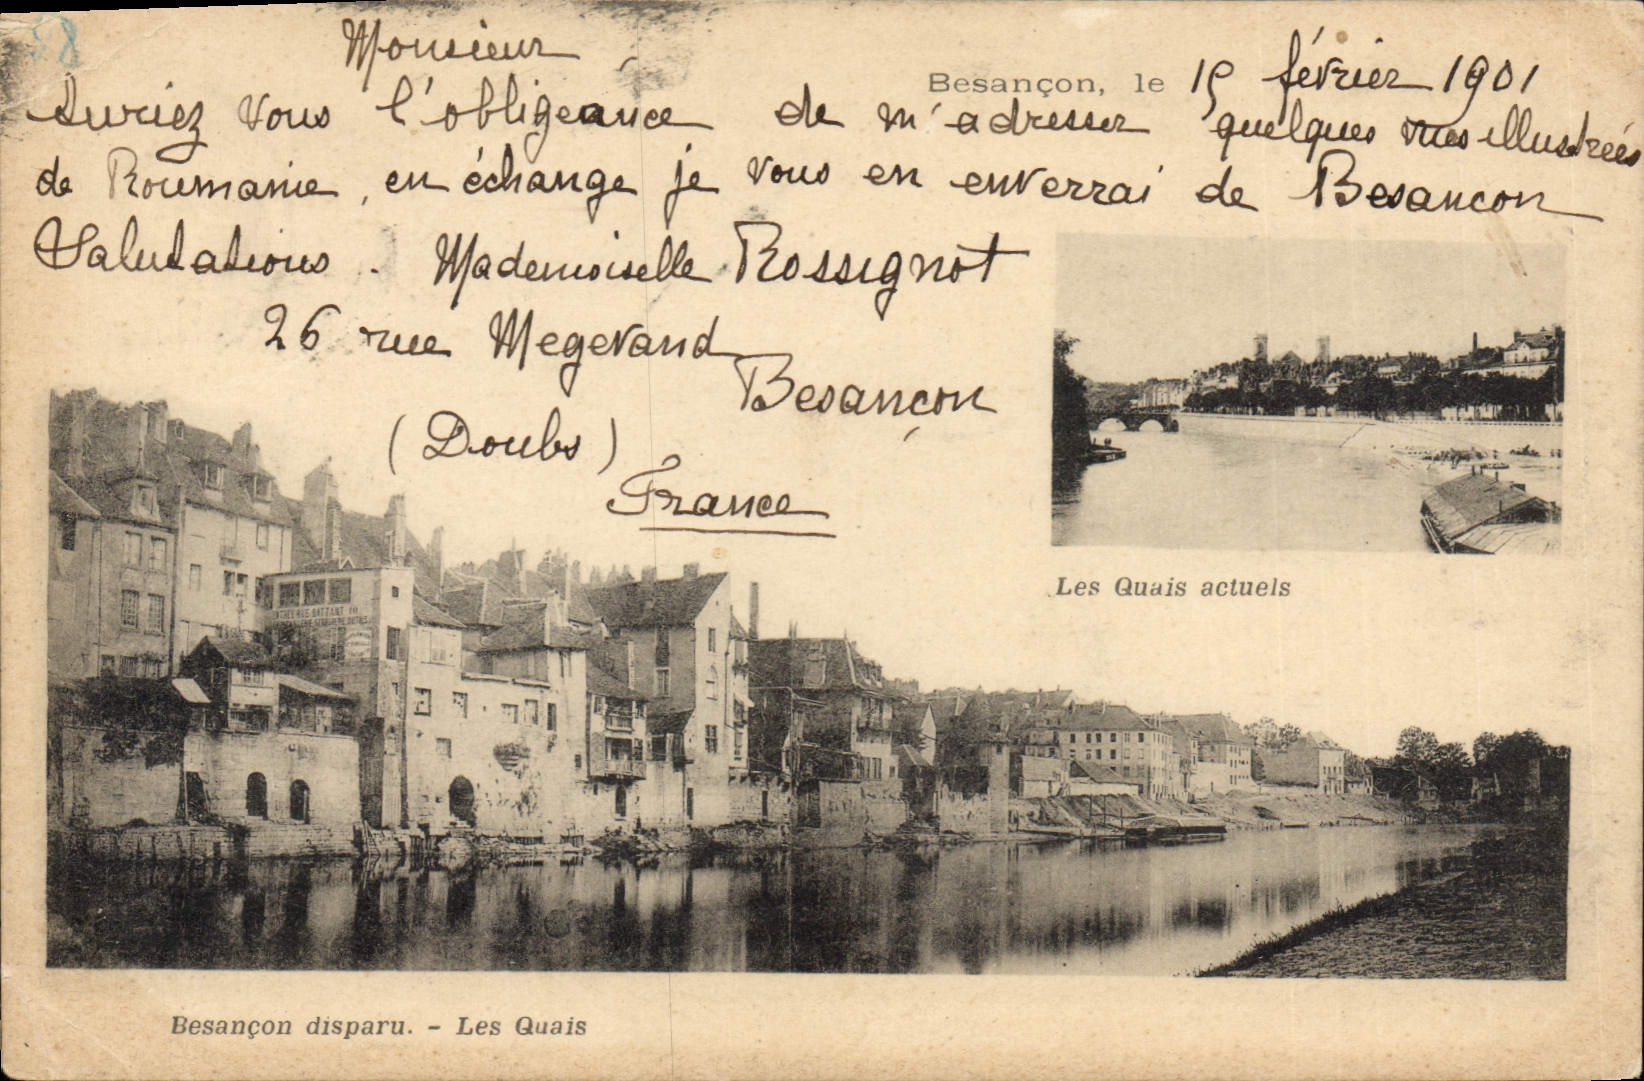 Monsieur
Besançon, le 15 février 1901
Auriez vous l'obligeance de m'adresser quelques vues illustrées
de Roumanie, en échange je vous en enverrai de Besancon
Salutations. Mademoiselle Rossignot
26 rue Megevand
Besançon
(Doubs)
France
Les Quais actuels
BATTANT
Besançon disparu. - Les Quais